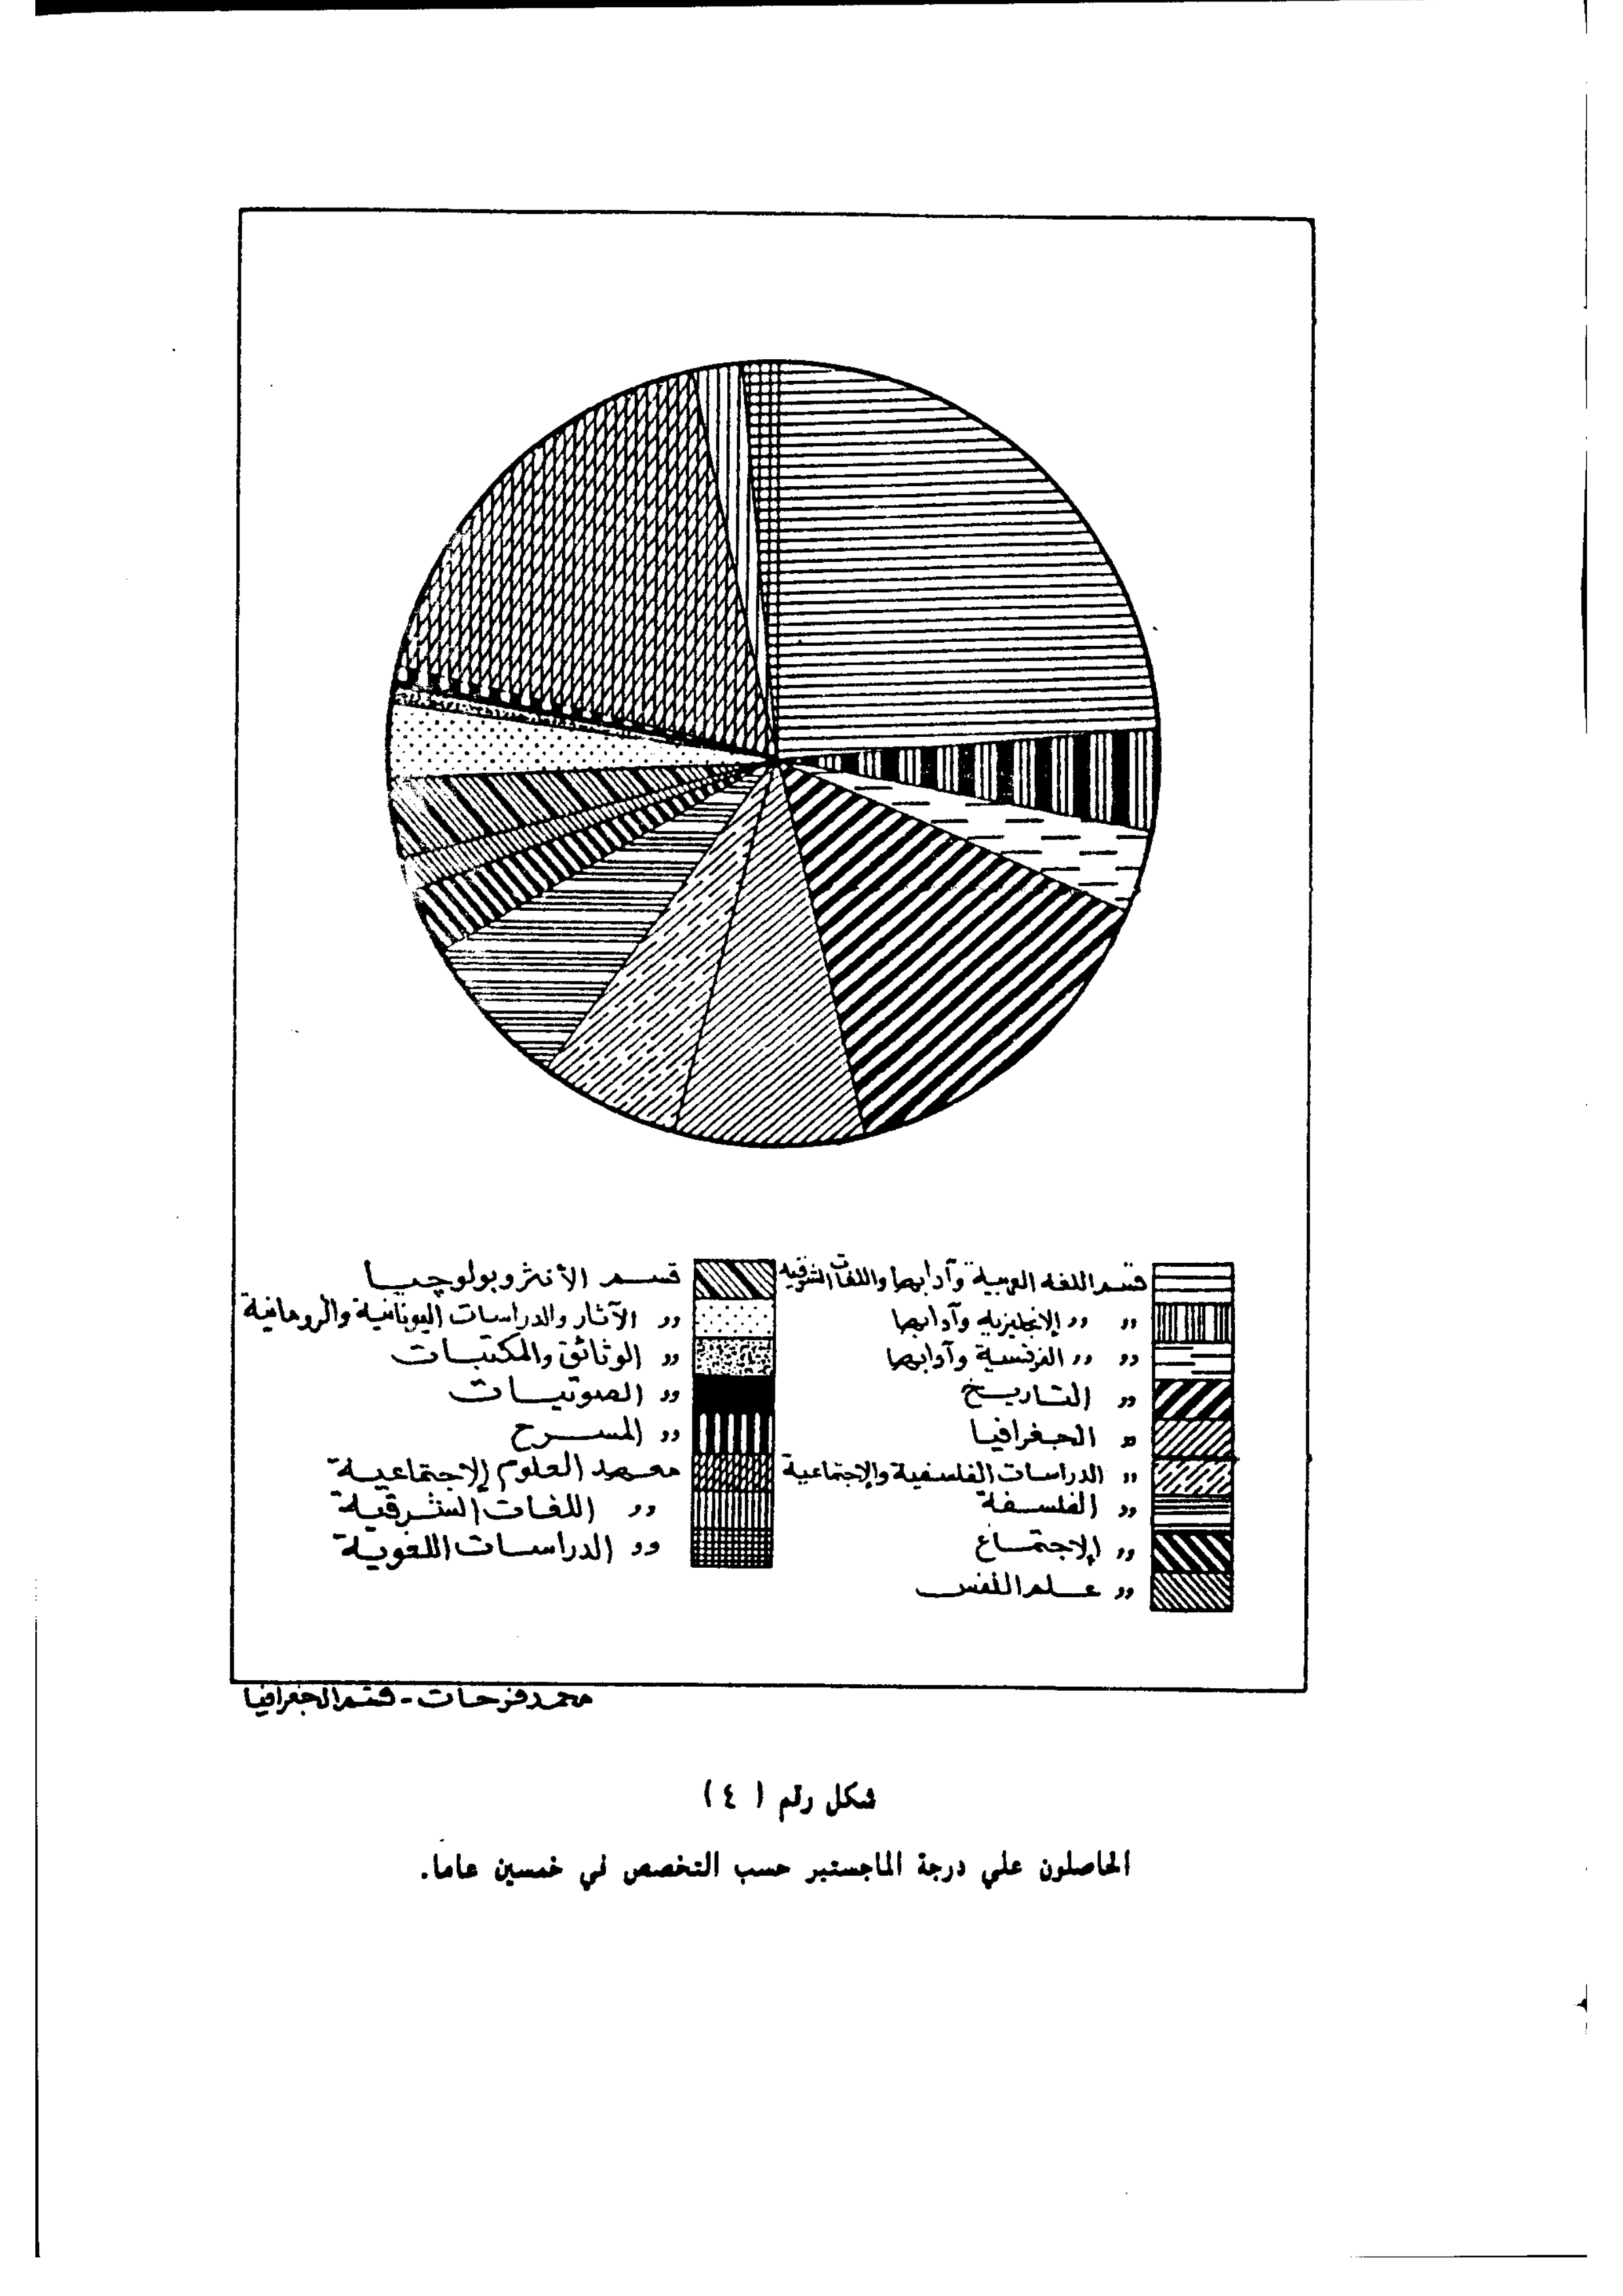 قسم اللغة العربية وآدابها واللغات الشرقية
,, ,, الإنجليزية وآدابها
,, ,, الفرنسية وآدابها
,, التاريخ
,, الجغرافيا
,, الدراسات الفلسفية والإجتماعية
,, الفلسفة
,, الإجتماع
,, علم النفس
قسم الأنثروبولوجيا
,, الآثار والدراسات اليونانية والرومانية
,, الوثائق والمكتبات
,, الصوتيات
,, المسرح
معهد العلوم الإجتماعية
,, اللغات الشرقية
,, الدراسات اللغوية
محمد فرحات - قسم الجغرافيا
شكل رقم ( ٤ )
الحاصلون علي درجة الماجستير حسب التخصص في خمسين عاما.